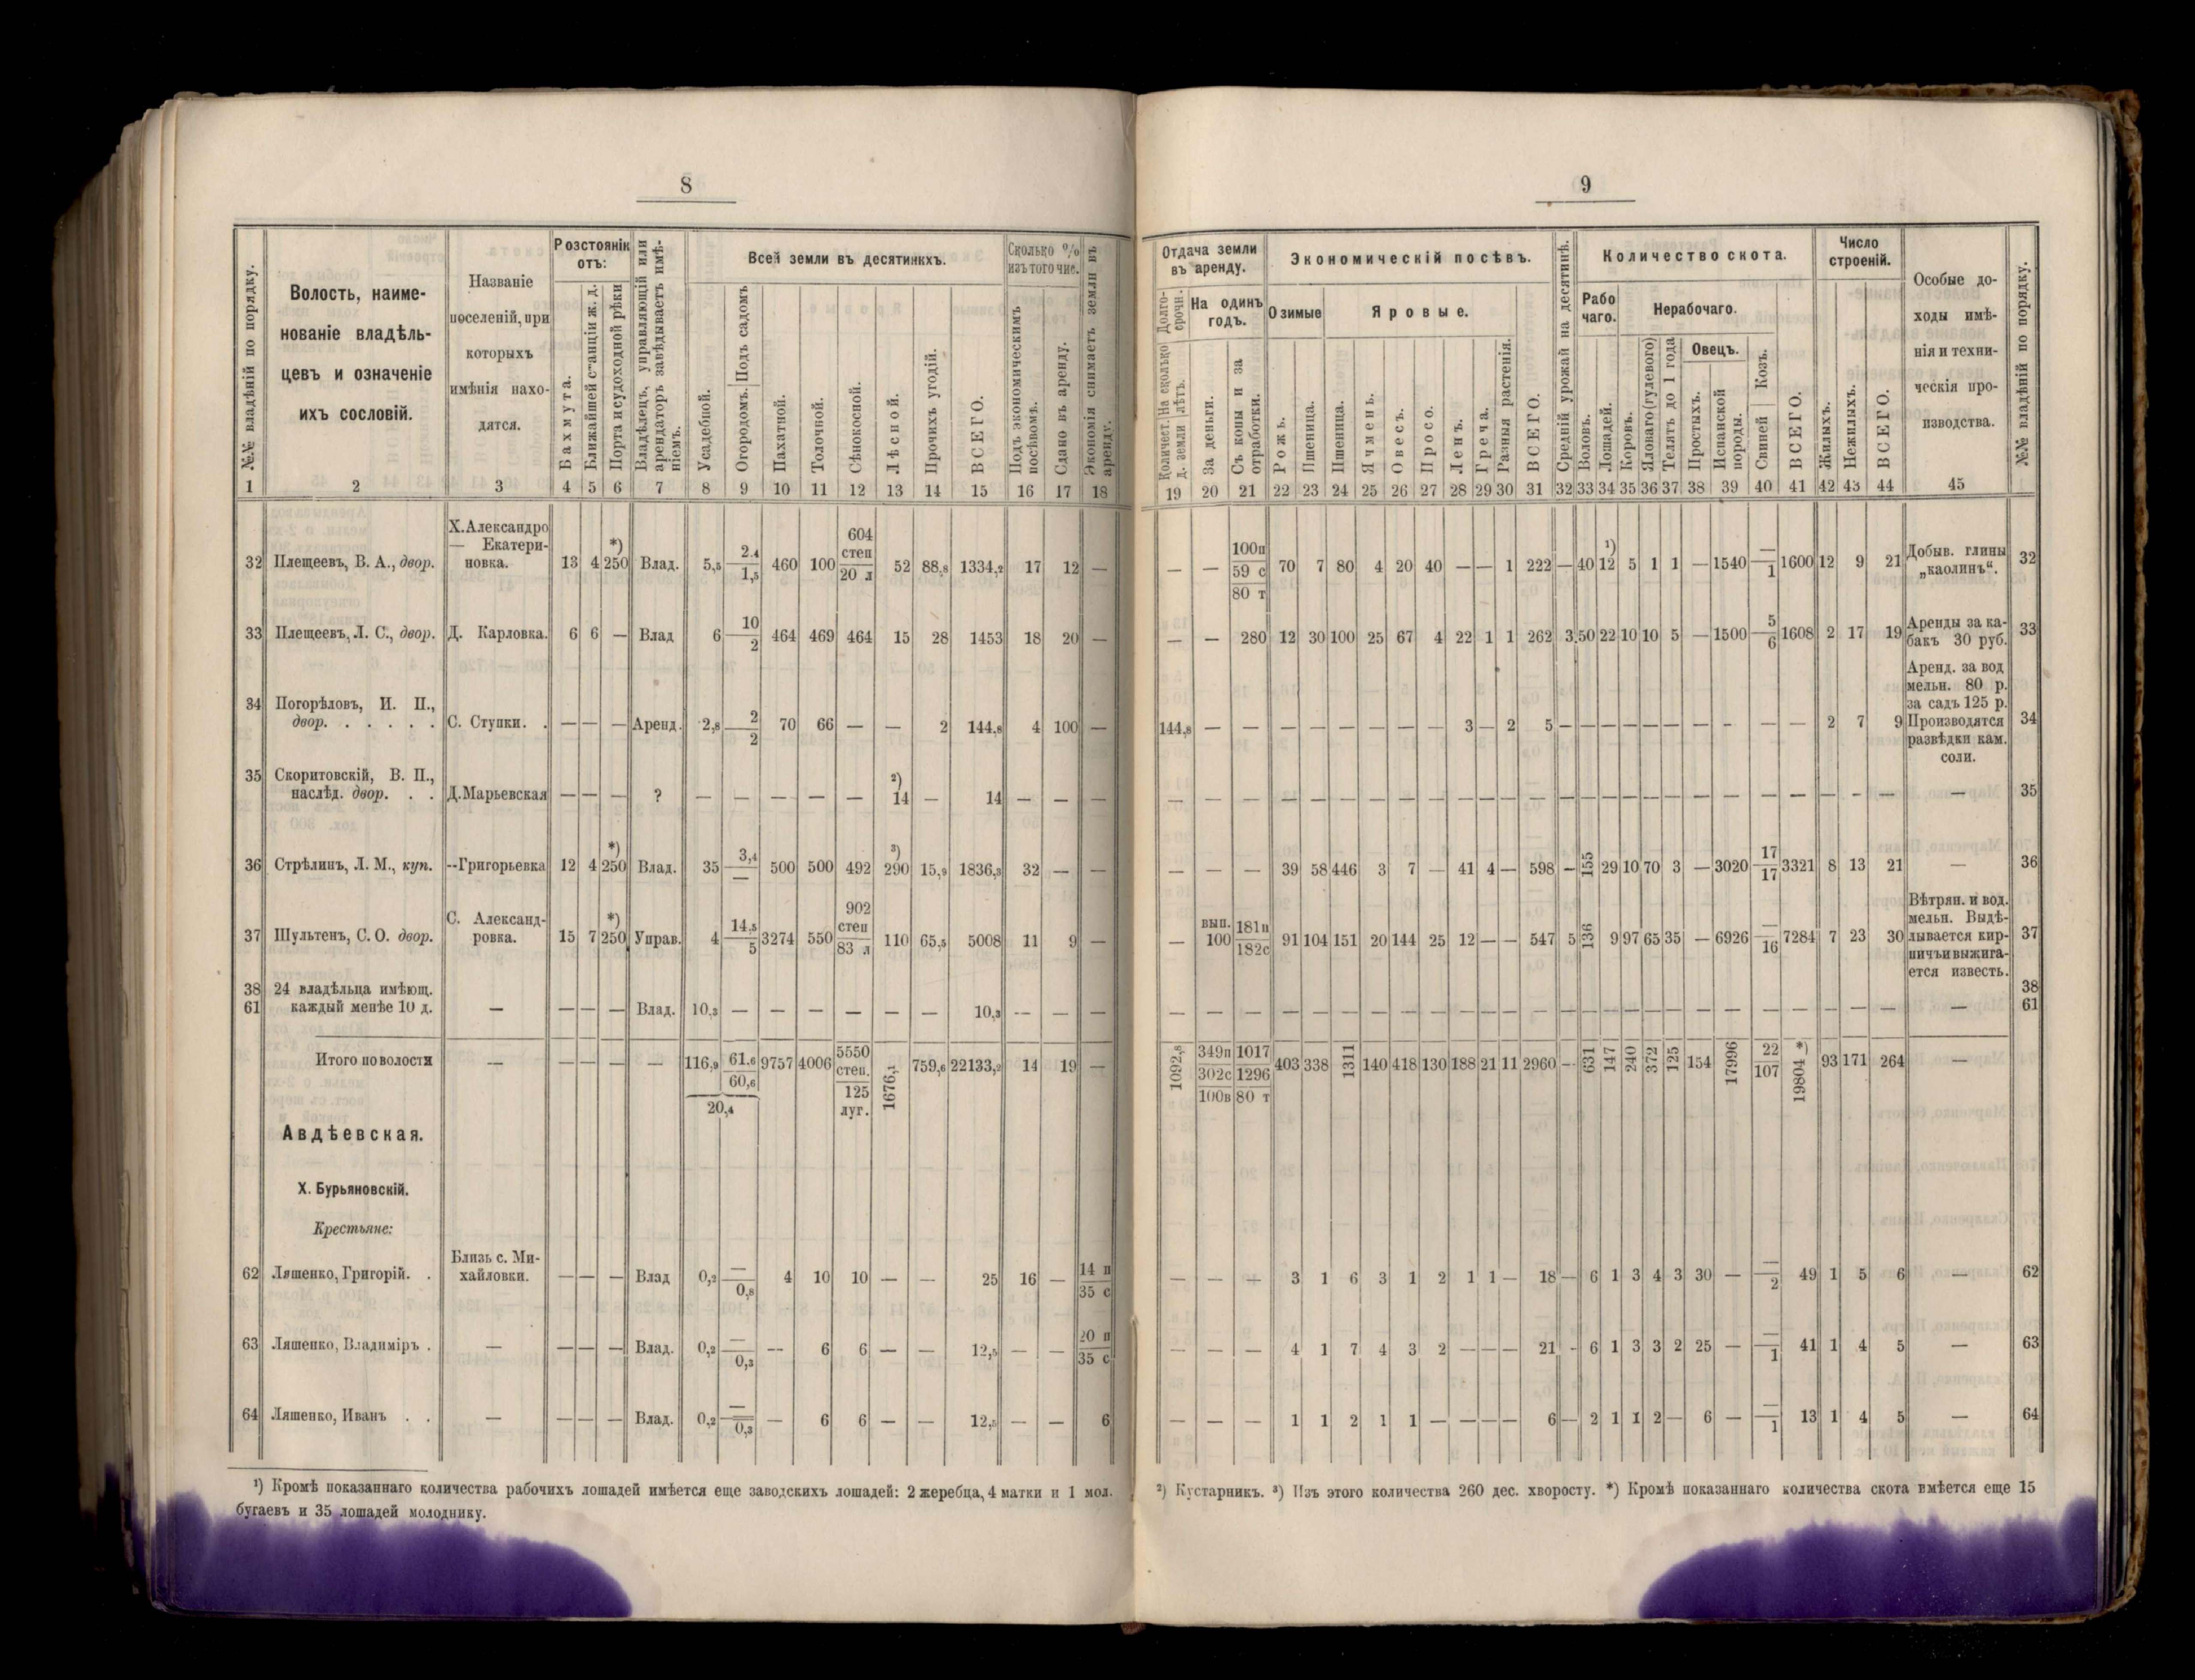 8
№№ владѣній по порядку.
Волость, наиме-
нованіе владѣль-
цевъ и означеніе
ихъ сословій.
Названіе
поселеній, при
которыхъ
имѣнія нахо-
дятся.
Розстоянік
отъ:
Бахмута.
Ближайшей станціи ж. д.
Порта и судоходной рѣки
Владѣлецъ, управляющій или
арендаторъ завѣдываетъ имѣ-
ніемъ.
Всей земли въ десятинкхъ.
Усадебной.
Огородомъ. Подъ садомъ
Пахатной.
Толочной.
Сѣнокосной.
Лѣсной.
Прочихъ угодій.
ВСЕГО.
Сколько %
изъ того чис.
Подъ экономическимъ
посѣвомъ.
Сдано въ аренду.
Экономія снимаетъ земли въ
аренду.
1 2 3 4 5 6 7 8 9 10 11 12 13 14 15 16 17 18
32 Плещеевъ, В. А., двор. Х. Александро — Екатери- новка. 13 4 *) 250 Влад. 5,5 2.4 1,5 460 100 604 степ 20 л 52 88,8 1334,2 17 12 —
33 Плещеевъ, Л. С., двор. Д. Карловка. 6 6 — Влад 6 10 2 464 469 464 15 28 1453 18 20 —
34 Погорѣловъ, И. П.,
двор. . . . . . С. Ступки. . — — — Аренд. 2,8 2 2 70 66 — — 2 144,8 4 100 —
35 Скоритовскій, В. П.,
наслѣд. двор. . . Д. Марьевская — — — ? — — — — — ²) 14 — 14 — — —
36 Стрѣлинъ, Л. М., куп. --Григорьевка 12 4 *) 250 Влад. 35 3,4 — 500 500 492 ³) 290 15,9 1836,3 32 — —
37 Шультенъ, С. О. двор. С. Александ- ровка. 15 7 *) 250 Управ. 4 14,5 5 3274 550 902 степ 83 л 110 65,5 5008 11 9 —
38 24 владѣльца имѣющ.
61 каждый менѣе 10 д. — — — — Влад. 10,3 — — — — — — 10,3 -- — —
Итого по волости — — — — — 116,9 61.6 60,6 9757 4006 5550 степ. 125 луг. 1676,1 759,6 22133,2 14 19 —
20,4
Авдѣевская.
Х. Бурьяновскій.
Крестьяне:
62 Ляшенко, Григорій. . Близь с. Ми- хайловки. — — — Влад 0,2 — 0,8 4 10 10 — — 25 16 — 14 п 35 с
63 Ляшенко, Владиміръ . — — — — Влад. 0,2 — 0,3 -- 6 6 — — 12,5 — — 20 п 35 с
64 Ляшенко, Иванъ . . — — — — Влад. 0,2 — 0,3 — 6 6 — — 12,5 — — 6
¹) Кромѣ показаннаго количества рабочихъ лошадей имѣется еще заводскихъ лошадей: 2 жеребца, 4 матки и 1 мол.
бугаевъ и 35 лошадей молоднику.
9
Отдача земли
въ аренду.
Долго-
срочн.
Количест. На сколько
д. земли лѣтъ.
На одинъ
годъ.
За деньги.
Съ копы и за
отработки.
Экономическій посѣвъ.
Озимые
Рожь.
Пшеница.
Яровые.
Пшеница.
Ячмень.
Овесъ.
Просо.
Ленъ.
Греча.
Разныя растенія.
ВСЕГО.
Средній урожай на десятинѣ.
Количество скота.
Рабо
чаго.
Воловъ.
Лошадей.
Нерабочаго.
Коровъ.
Яловаго (гулеваго)
Телятъ до 1 года
Овецъ.
Простыхъ.
Испанской
породы.
Свиней Козъ.
ВСЕГО.
Число
строеній.
Жилыхъ.
Нежилыхъ.
ВСЕГО.
Особые до-
ходы имѣ-
нія и техни-
ческія про-
изводства.
№№ владѣній по порядку.
19 20 21 22 23 24 25 26 27 28 29 30 31 32 33 34 35 36 37 38 39 40 41 42 43 44 45
— — 100п 59 с 80 т 70 7 80 4 20 40 — — 1 222 — 40 ¹) 12 5 1 1 — 1540 — 1 1600 12 9 21 Добыв. глины „каолинъ“. 32
— — 280 12 30 100 25 67 4 22 1 1 262 3, 50 22 10 10 5 — 1500 5 6 1608 2 17 19 Аренды за ка- бакъ 30 руб. 33
144,8 — — — — — — — — 3 — 2 5 — — — — — — — - — — 2 7 9 Аренд. за вод
мельн. 80 р.
за садъ 125 р.
Производятся
развѣдки кам.
соли. 34
— — — — — — — — — — — — — — — — — — — — — — — — - — — 35
— — — 39 58 446 3 7 — 41 4 — 598 — 155 29 10 70 3 — 3020 17 17 3321 8 13 21 — 36
— вып. 100 181п 182с 91 104 151 20 144 25 12 — — 547 5 136 9 97 65 35 — 6926 — 16 7284 7 23 30 Вѣтрян. и вод.
мельн. Выдѣ-
лывается кир-
пичъ и выжига-
ется известь. 37
— — — — — — — — — — — — — — — — — — — — — — — — — — — 38
61
1092,8 349п 302с 100в 1017 1296 80 т 403 338 1311 140 418 130 188 21 11 2960 -- 631 147 240 372 125 154 17996 22 107 19804 *) 93 171 264 —
— — — 3 1 6 3 1 2 1 1 — 18 — 6 1 3 4 3 30 — — 2 49 1 5 6 — 62
— — — 4 1 7 4 3 2 — — — 21 - 6 1 3 3 2 25 — — 1 41 1 4 5 — 63
— — — 1 1 2 1 1 — — — — 6 — 2 1 1 2 — 6 — — 1 13 1 4 5 — 64
²) Кустарникъ. ³) Изъ этого количества 260 дес. хворосту. *) Кромѣ показаннаго количества скота имѣется еще 15